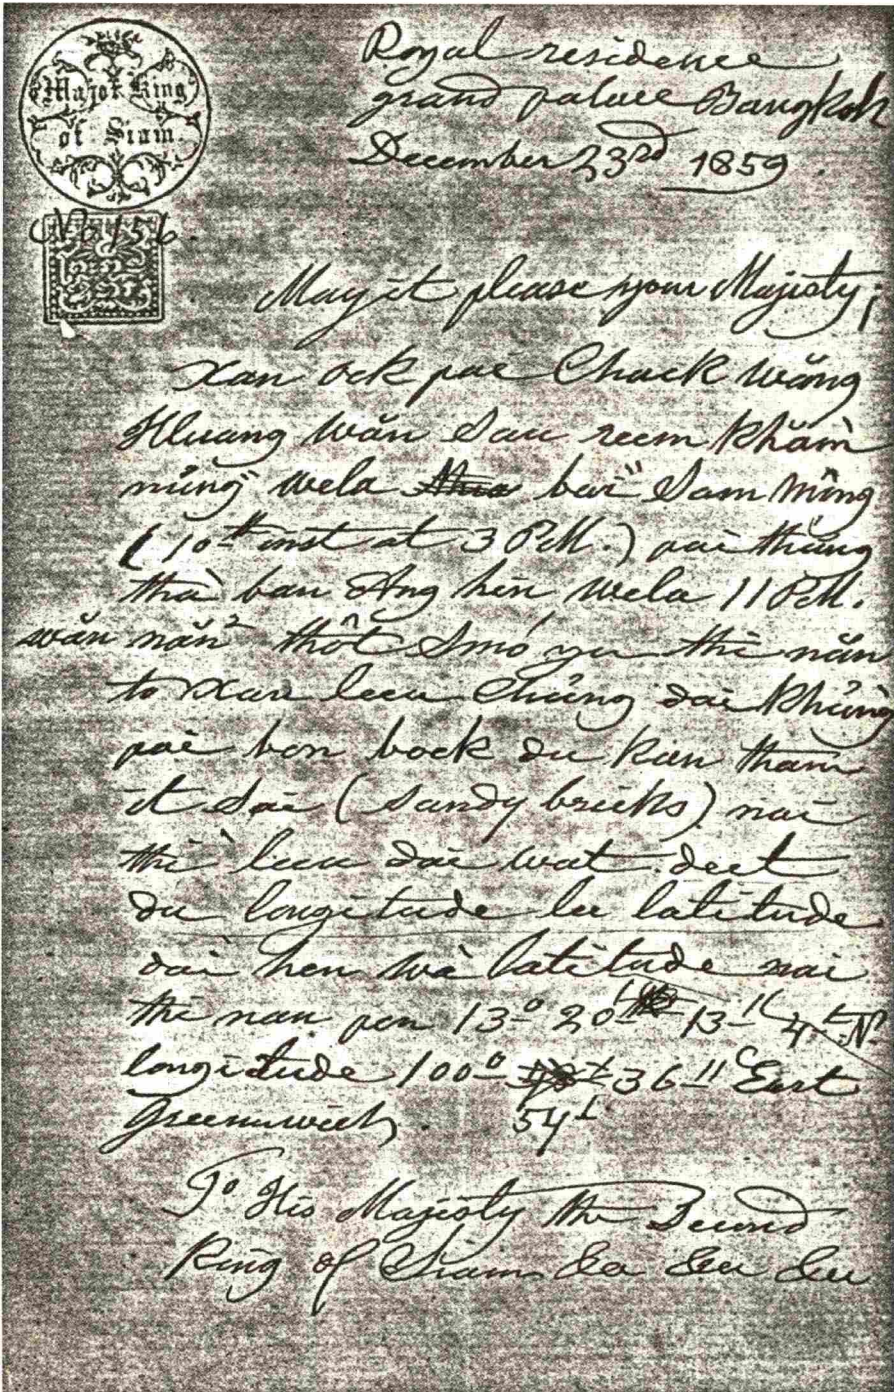 Major King
of Siam
No 156
Royal residence
grand palace Bangkok
December 23rd 1859
May it please your Majesty;
Xan ock pai Chack wăng
Hluang wăn Sau reem khăm
nŭng wela bai Sam mông
(10th inst at 3 P.M.) pai thŭng
thà ban Ang hin wela 11 P.M.
wăn năn thôt Smó yu thi năn
to Xau leeu Chŭng dai khŭn
pai bon bock du kan tham
it Sai (Sandy bricks) nai
thi leeu dai wat deet
du longitude lee latitude
dai hen wà latitude nai
thi nan pen 13° 20' 13" 4''' N
longitude 100° 54' 36" East
Greenwich
To His Majesty the Second
King of Siam &c &c &c